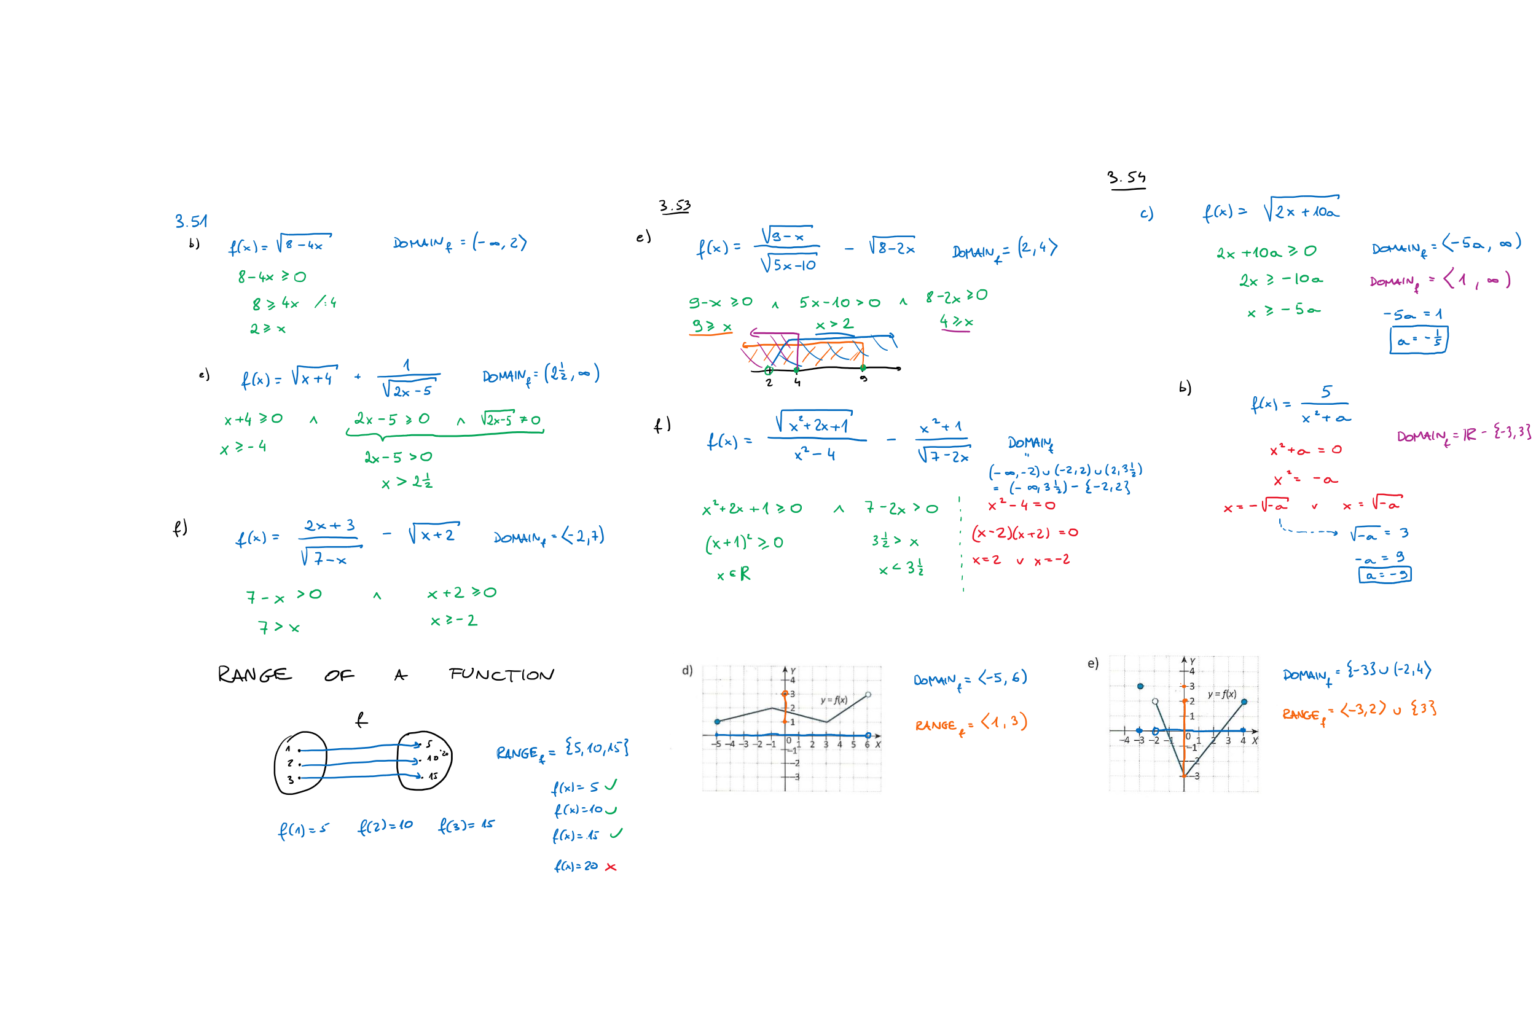 3.51
b) f(x) = √(8-4x) DOMAIN_f = (-∞, 2⟩
8-4x ≥ 0
8 ≥ 4x /:4
2 ≥ x
e) f(x) = √(x+4) + 1/√(2x-5) DOMAIN_f = (2½, ∞)
x+4 ≥ 0 ∧ 2x-5 ≥ 0 ∧ √(2x-5) ≠ 0
x ≥ -4
2x-5 > 0
x > 2½
f) f(x) = (2x+3)/√(7-x) - √(x+2) DOMAIN_f = ⟨-2,7)
7-x > 0 ∧ x+2 ≥ 0
7 > x x ≥ -2
RANGE OF A FUNCTION
f
1 5
2 10 20
3 15
RANGE_f = {5,10,15}
f(x) = 5 ✓
f(x) = 10 ✓
f(x) = 15 ✓
f(x) = 20 ×
f(1) = 5 f(2) = 10 f(3) = 15
3.53
e) f(x) = √(9-x)/√(5x-10) - √(8-2x) DOMAIN_f = (2,4⟩
9-x ≥ 0 ∧ 5x-10 > 0 ∧ 8-2x ≥ 0
9 ≥ x x > 2 4 ≥ x
2 4 9
f) f(x) = √(x²+2x+1)/(x²-4) - (x²+1)/√(7-2x) DOMAIN_f
"
(-∞,-2)∪(-2,2)∪(2,3½)
= (-∞,3½) - {-2,2}
x²+2x+1 ≥ 0 ∧ 7-2x > 0 x²-4 = 0
(x+1)² ≥ 0 3½ > x (x-2)(x+2) = 0
x ∈ R x < 3½ x=2 ∨ x=-2
d) y = f(x) Y
4
3
2
1
-5 -4 -3 -2 -1 0 1 2 3 4 5 6 X
-1
-2
-3
DOMAIN_f = ⟨-5, 6)
RANGE_f = ⟨1, 3)
3.54
c) f(x) = √(2x+10a)
2x+10a ≥ 0 DOMAIN_f = ⟨-5a, ∞)
2x ≥ -10a DOMAIN_f = ⟨1, ∞)
x ≥ -5a -5a = 1
a = -1/5
b) f(x) = 5/(x²+a)
DOMAIN_f = R - {-3,3}
x²+a = 0
x² = -a
x = -√-a ∨ x = √-a
√-a = 3
-a = 9
a = -9
e) y = f(x) Y
4
3
2
1
-4 -3 -2 -1 0 1 2 3 4 X
-1
-2
-3
DOMAIN_f = {-3}∪(-2,4⟩
RANGE_f = ⟨-3,2⟩ ∪ {3}